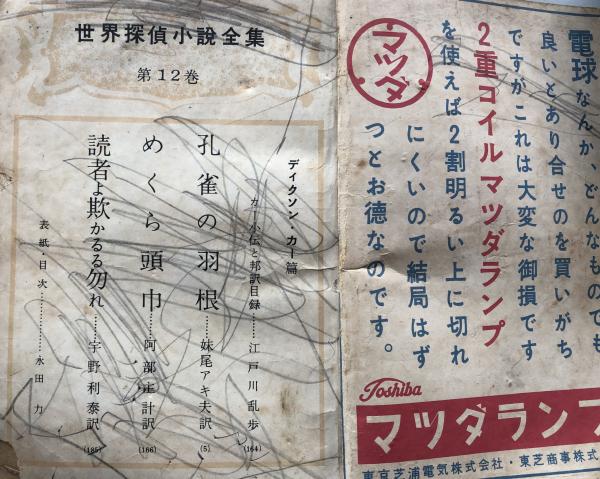 世界探偵小說全集
第12巻
ディクソン・カー篇
カー小伝と邦訳目録……江戸川乱歩(164)
孔雀の羽根……妹尾アキ夫訳(5)
めくら頭巾……阿部主計訳(166)
読者よ欺かるる勿れ……宇野利泰訳(185)
表紙・目次……永田力
電球なんか、どんなものでも
良いとあり合せのを買いがち
ですがこれは大変な御損です
2重コイルマツダランプ
を使えば2割明るい上に切れ
にくいので結局はず
つとお徳なのです。
マツダ
Toshiba
マツダランプ
東京芝浦電気株式会社・東芝商事株式